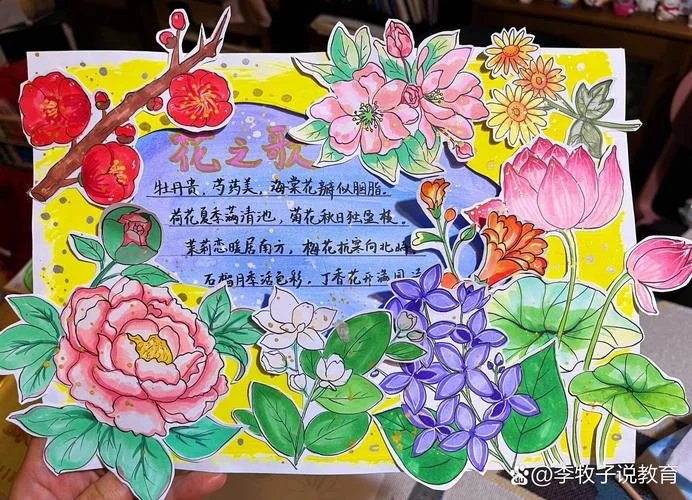 花之歌
牡丹贵、芍药美，海棠花瓣似胭脂。
荷花夏季满清池，菊花秋日独盛
茉莉恋暖居南方，梅花抗寒向北
石榴月季活色彩，丁香花开满园
@李牧子说教育